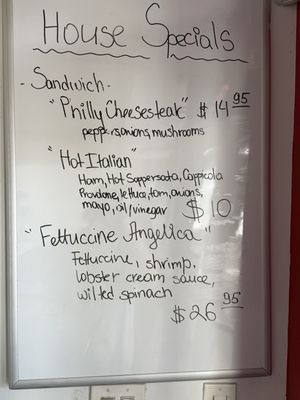 House Specials
- Sandwich -
"Philly Cheesesteak" $14 95
peppers, onions, mushrooms
"Hot Italian"
Ham, Hot Soppersata, Coppicola
Provolone, lettuce, tom, onions,
mayo, oil/vinegar $10
"Fettuccine Angelica"
Fettuccine, shrimp,
lobster cream sauce,
wilted spinach
$26 95